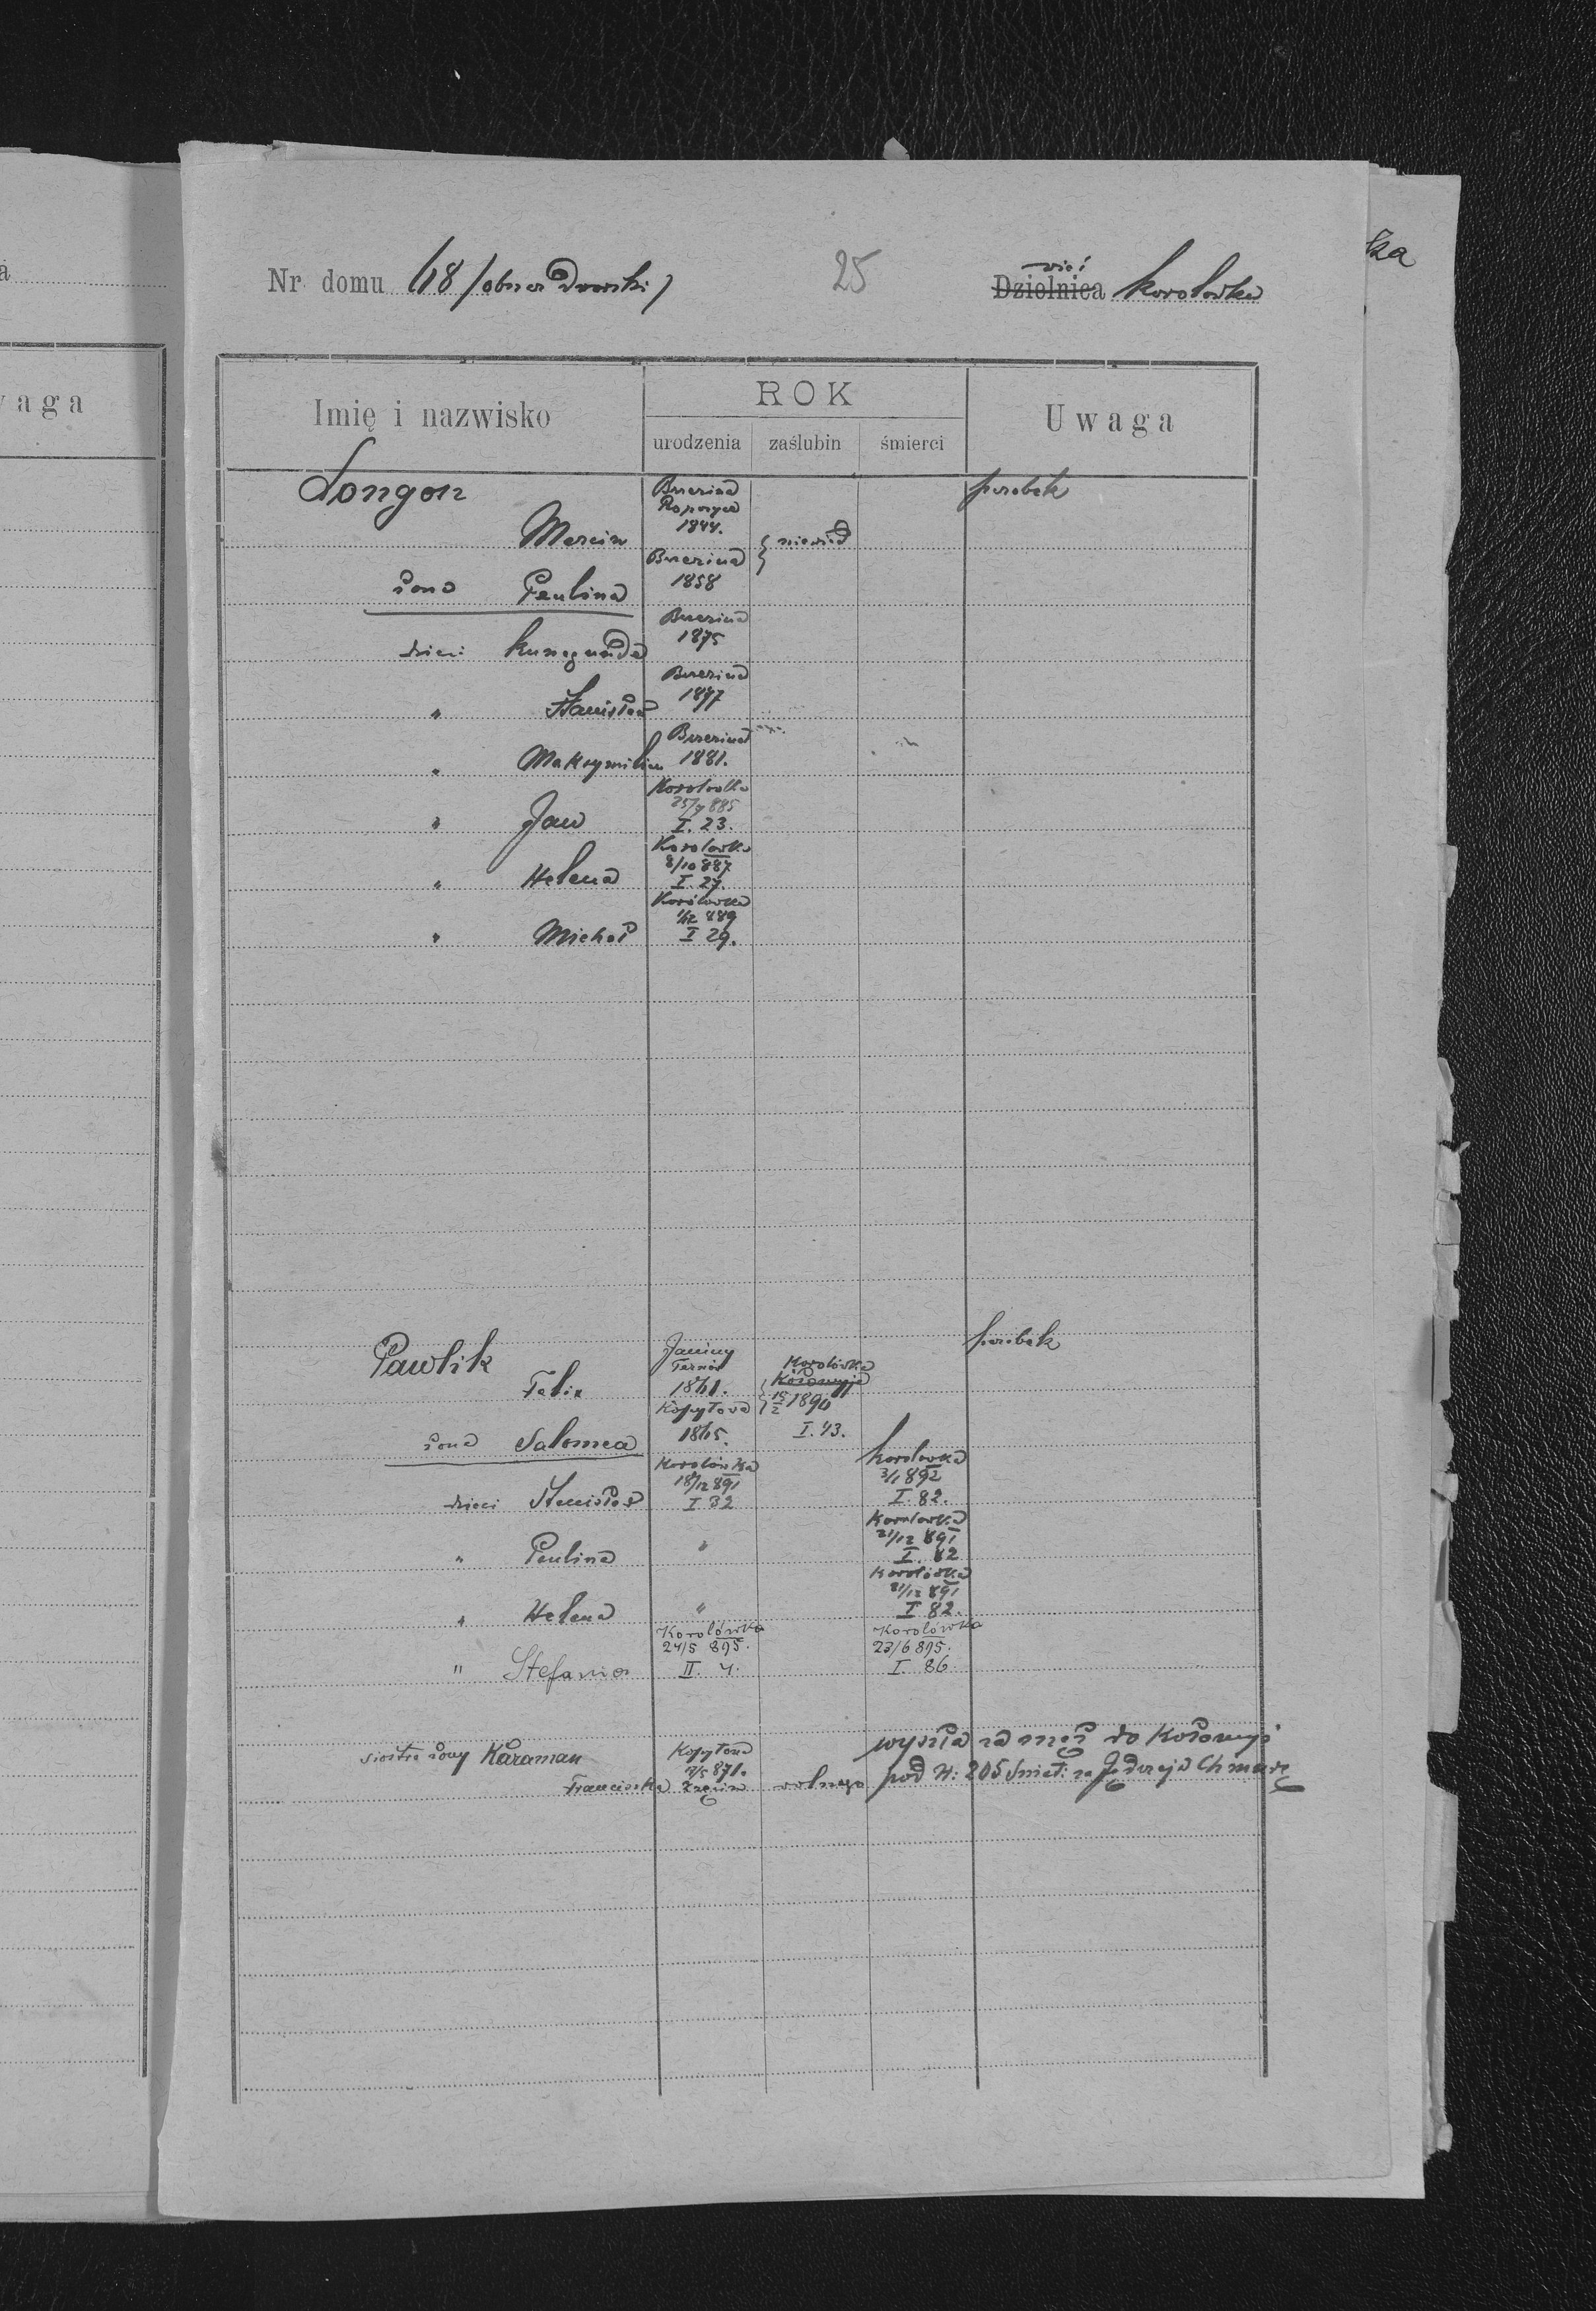 a
waga
ka
Nr domu (18 / obszar dworski)
25
wieś
Dzielnica Korolówka
Imię i nazwisko
ROK
urodzenia zaślubin śmierci
Uwaga
Longon
Brzezina
Ropczyce
1844.
parobek
Marcin
niewiad
żona Paulina
Brzezina
1858
dzieci Kunegunda
Brzezina
1875
" Stanisław
Brzezina
1877
" Maksymilian
Brzezina
1881.
" Jan
Korolówka
25/7 885
I. 23.
" Helena
Korolówka
8/10 887
I. 27.
" Michał
Korolówka
1/12 889
I 29.
Pawlik
parobek
Felix
Janiny
Tarnów
1861.
Korolówka
Kołomyja
15/2 1890
I. 43.
żona Salomea
Kopytowa
1865.
dzieci Stanisław
Korolówka
18/12 891
I 32
Korolówka
3/1 892
I. 82.
" Paulina
"
Korolówka
21/12 891
I. 82
" Helena
"
Korolówka
21/12 891
I 82.
" Stefania
Korolówka
24/5 895.
II. 4.
Korolówka
23/6 895.
I. 86.
siostra żony Karaman
Franciszka
Kopytowa
2/5 871.
wolnego
wyszła za mąż do Kołomyi
pod N: 205 Śniat: za Jędrzeja Chmurę